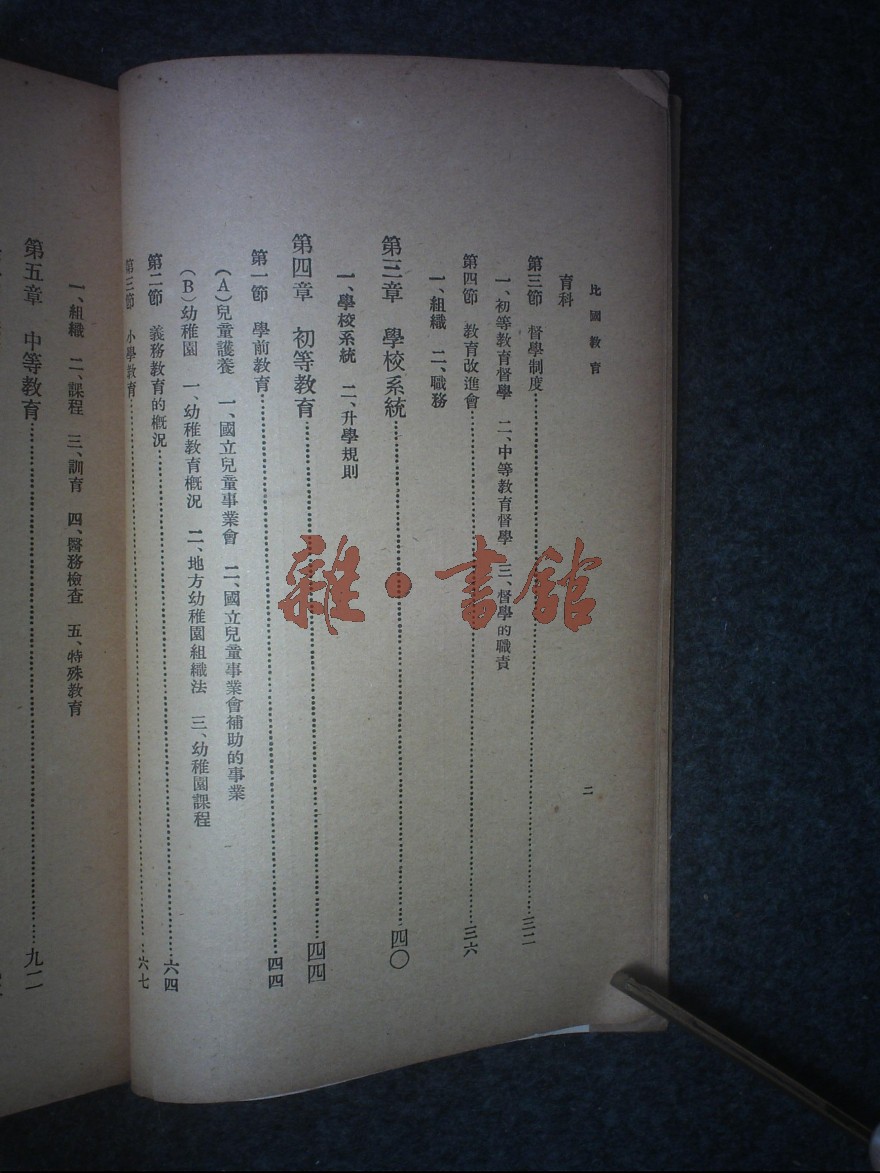 比國教育
二
育科
第三節 督學制度……三二
一、初等教育督學 二、中等教育督學 三、督學的職責
第四節 教育改進會……三六
一、組織 二、職務
第三章 學校系統……四〇
一、學校系統 二、升學規則
第四章 初等教育……四四
第一節 學前教育……四四
(A)兒童護養 一、國立兒童事業會 二、國立兒童事業會補助的事業
(B)幼稚園 一、幼稚教育概況 二、地方幼稚園組織法 三、幼稚園課程
第二節 義務教育的概況……六四
第三節 小學教育……六七
一、組織 二、課程 三、訓育 四、醫務檢查 五、特殊教育
第五章 中等教育……九二
雜·書館